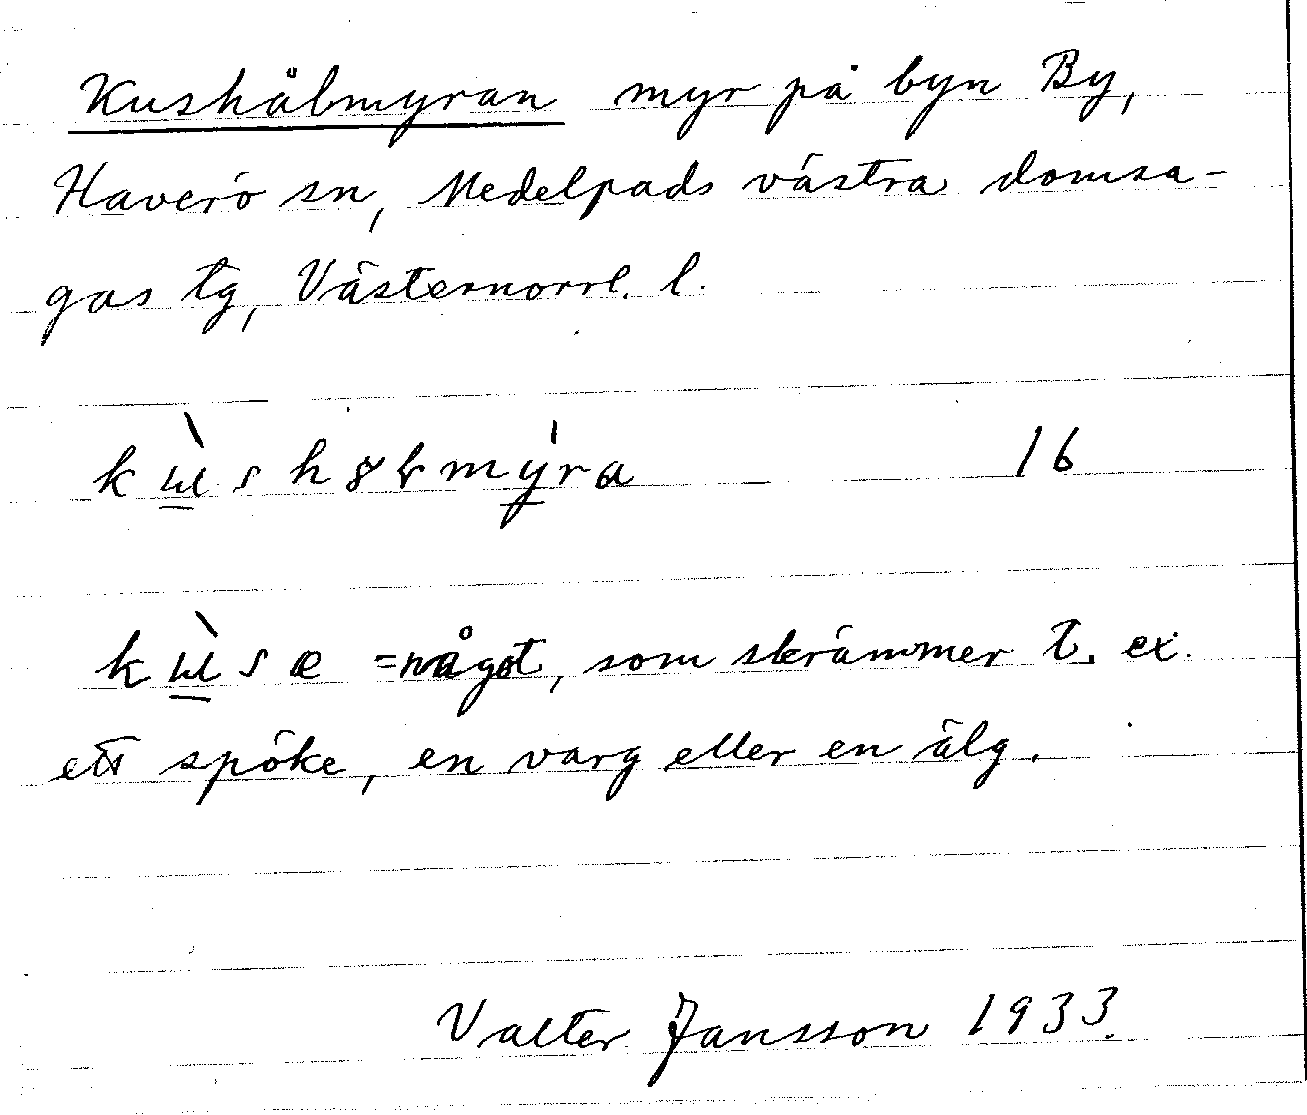 Kushålmyran myr på byn By,
Haverö sn, Medelpads västra domsa-
gas tg, Västernorrl. l.
16
= något, som skrämmer t. ex.
ett spöke, en varg eller en älg.
Valter Jansson 1933.